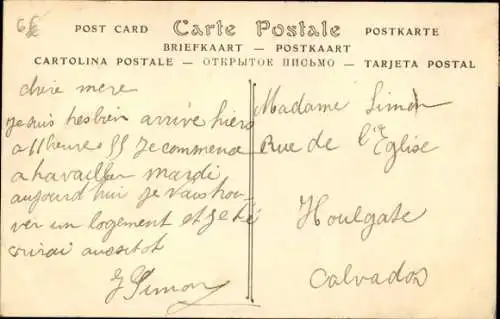 6f
POST CARD Carte Postale POSTKARTE
BRIEFKAART — POSTKAART
CARTOLINA POSTALE — ОТКРЫТОЕ ПИСЬМО — TARJETA POSTAL
chère mere
Je suis hesbien arrivé hiers
a 11 heure 55 Je commence
a travailler mardi
aujourd hui je vais trou-
ver un logement et je té
crirai aussitot
J Simon
Madame Simon
Rue de l'Eglise
Houlgate
Calvados